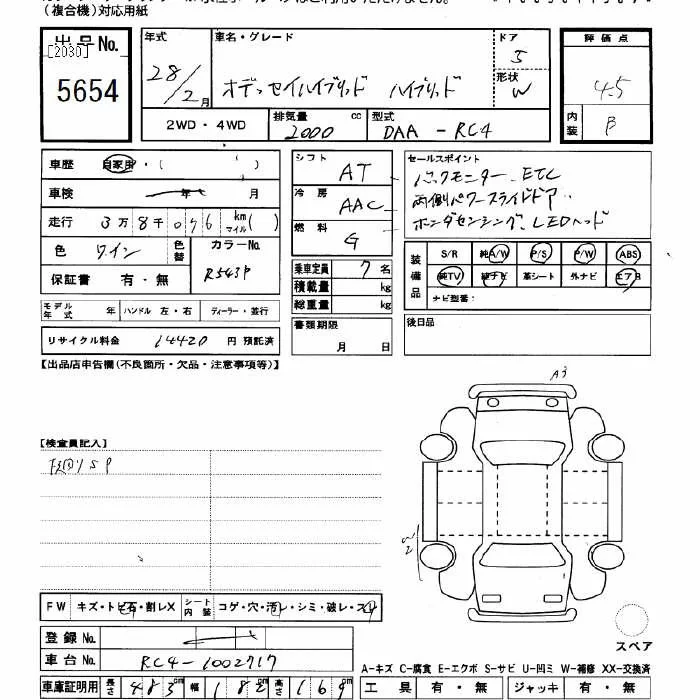 (複合機)対応用紙
出品No.
[2030]
5654
年式
28/2月
車名・グレード
オデッセイハイブリッド ハイブリッド
ドア
5
形状
W
評価点
4.5
内装
B
2WD・4WD
排気量 cc
2000
型式
DAA - RC4
車歴 自家用・( )
車検 年 月
走行 3万8千076 km マイル( )
色 ワイン
色替
カラーNo.
R543P
保証書 有・無
シフト AT
冷房 AAC
燃料 G
乗車定員 7名
積載量 kg
総重量 kg
書類期限
月 日
セールスポイント
バックモニター、ETC
両側パワースライドドア
ホンダセンシング、LEDヘッド
装備品
S/R 純A/W P/S P/W ABS
純TV 純ナビ 革シート 外ナビ エアB
ナビ型番:
後日品
モデル年式 年 ハンドル 左・右 ディーラー・並行
リサイクル料金 14420 円 預託済
【出品店申告欄(不良箇所・欠品・注意事項等)】
【検査員記入】
下回りSP
A3
W2
スペア
FW キズ・トビ石・割レX シート内装 コゲ・穴・汚レ・シミ・破レ・スリ
登録No.
車台No. RC4-1002717
車庫証明用 長さ 483cm 幅 182cm 高さ 169cm
A-キズ C-腐食 E-エクボ S-サビ U-凹ミ W-補修 XX-交換済
工具 有・無 ジャッキ 有・無